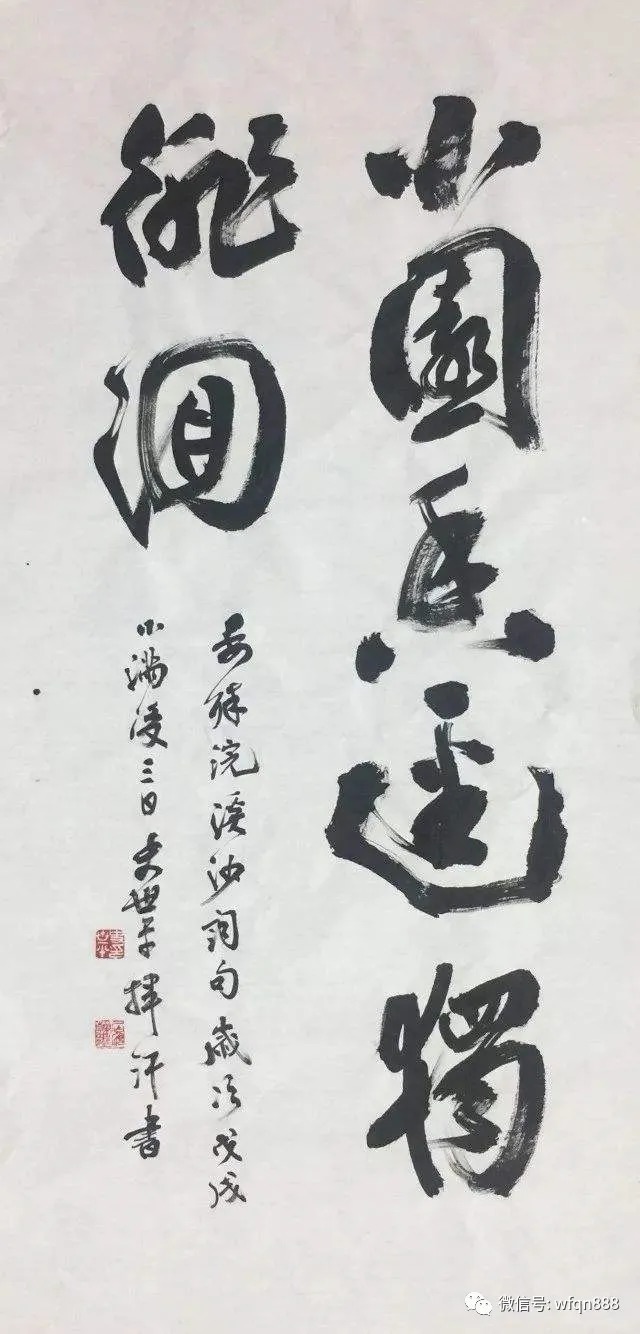 小園香逕獨
徘徊
晏殊浣溪沙詞句歲次戊戌
小滿後三日世平揮汗書
微信号: wfqn888